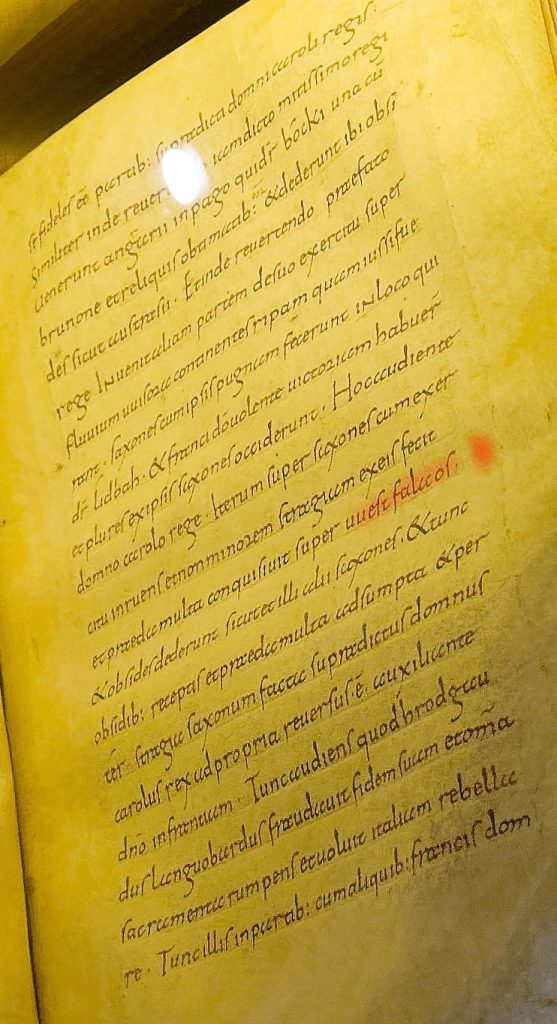 se fideles eē partib: supradicti domni caroli regis.
Similiter inde iamdicto mitissimo regi
Venerunt angrarii in pago quidr̄ bócki una cū
brunone et reliquis obtimatib: & dederunt ibi obsi
des sicut austrasii. Et inde reuertendo praefato
rege Inuenit aliam partem de suo exercitu super
fluuium uuisora continentes ripam quam iussi fue
rant. saxones cum ipsis pugnam fecerunt IN loco qui
dr̄ lidbah. & franci dō uolente uictoriam habuer̄
et plures ex ipsis saxones occiderunt. Hoc audiente
domno carolo rege. Iterum super saxones cum exer
citu inruens et non minorem stragiam ex eis fecit
et praeda multa conquisiuit super uuestfalaos.
& obsides dederunt sicut et illi alii saxones. & tunc
obsidib: receptis et praeda multa adsumpta & per
ter stragia saxonum facta supradictus domnus
carolus rex ad propria reuersus. ē. auxiliante
dnō in frantiam. Tunc audiens quod hrodgau
dus languobardus fraudauit fidem suam et om̄a
sacramenta rumpens et uoluit italiam rebella
re. Tunc illis in partib: cum aliquib: francis dom